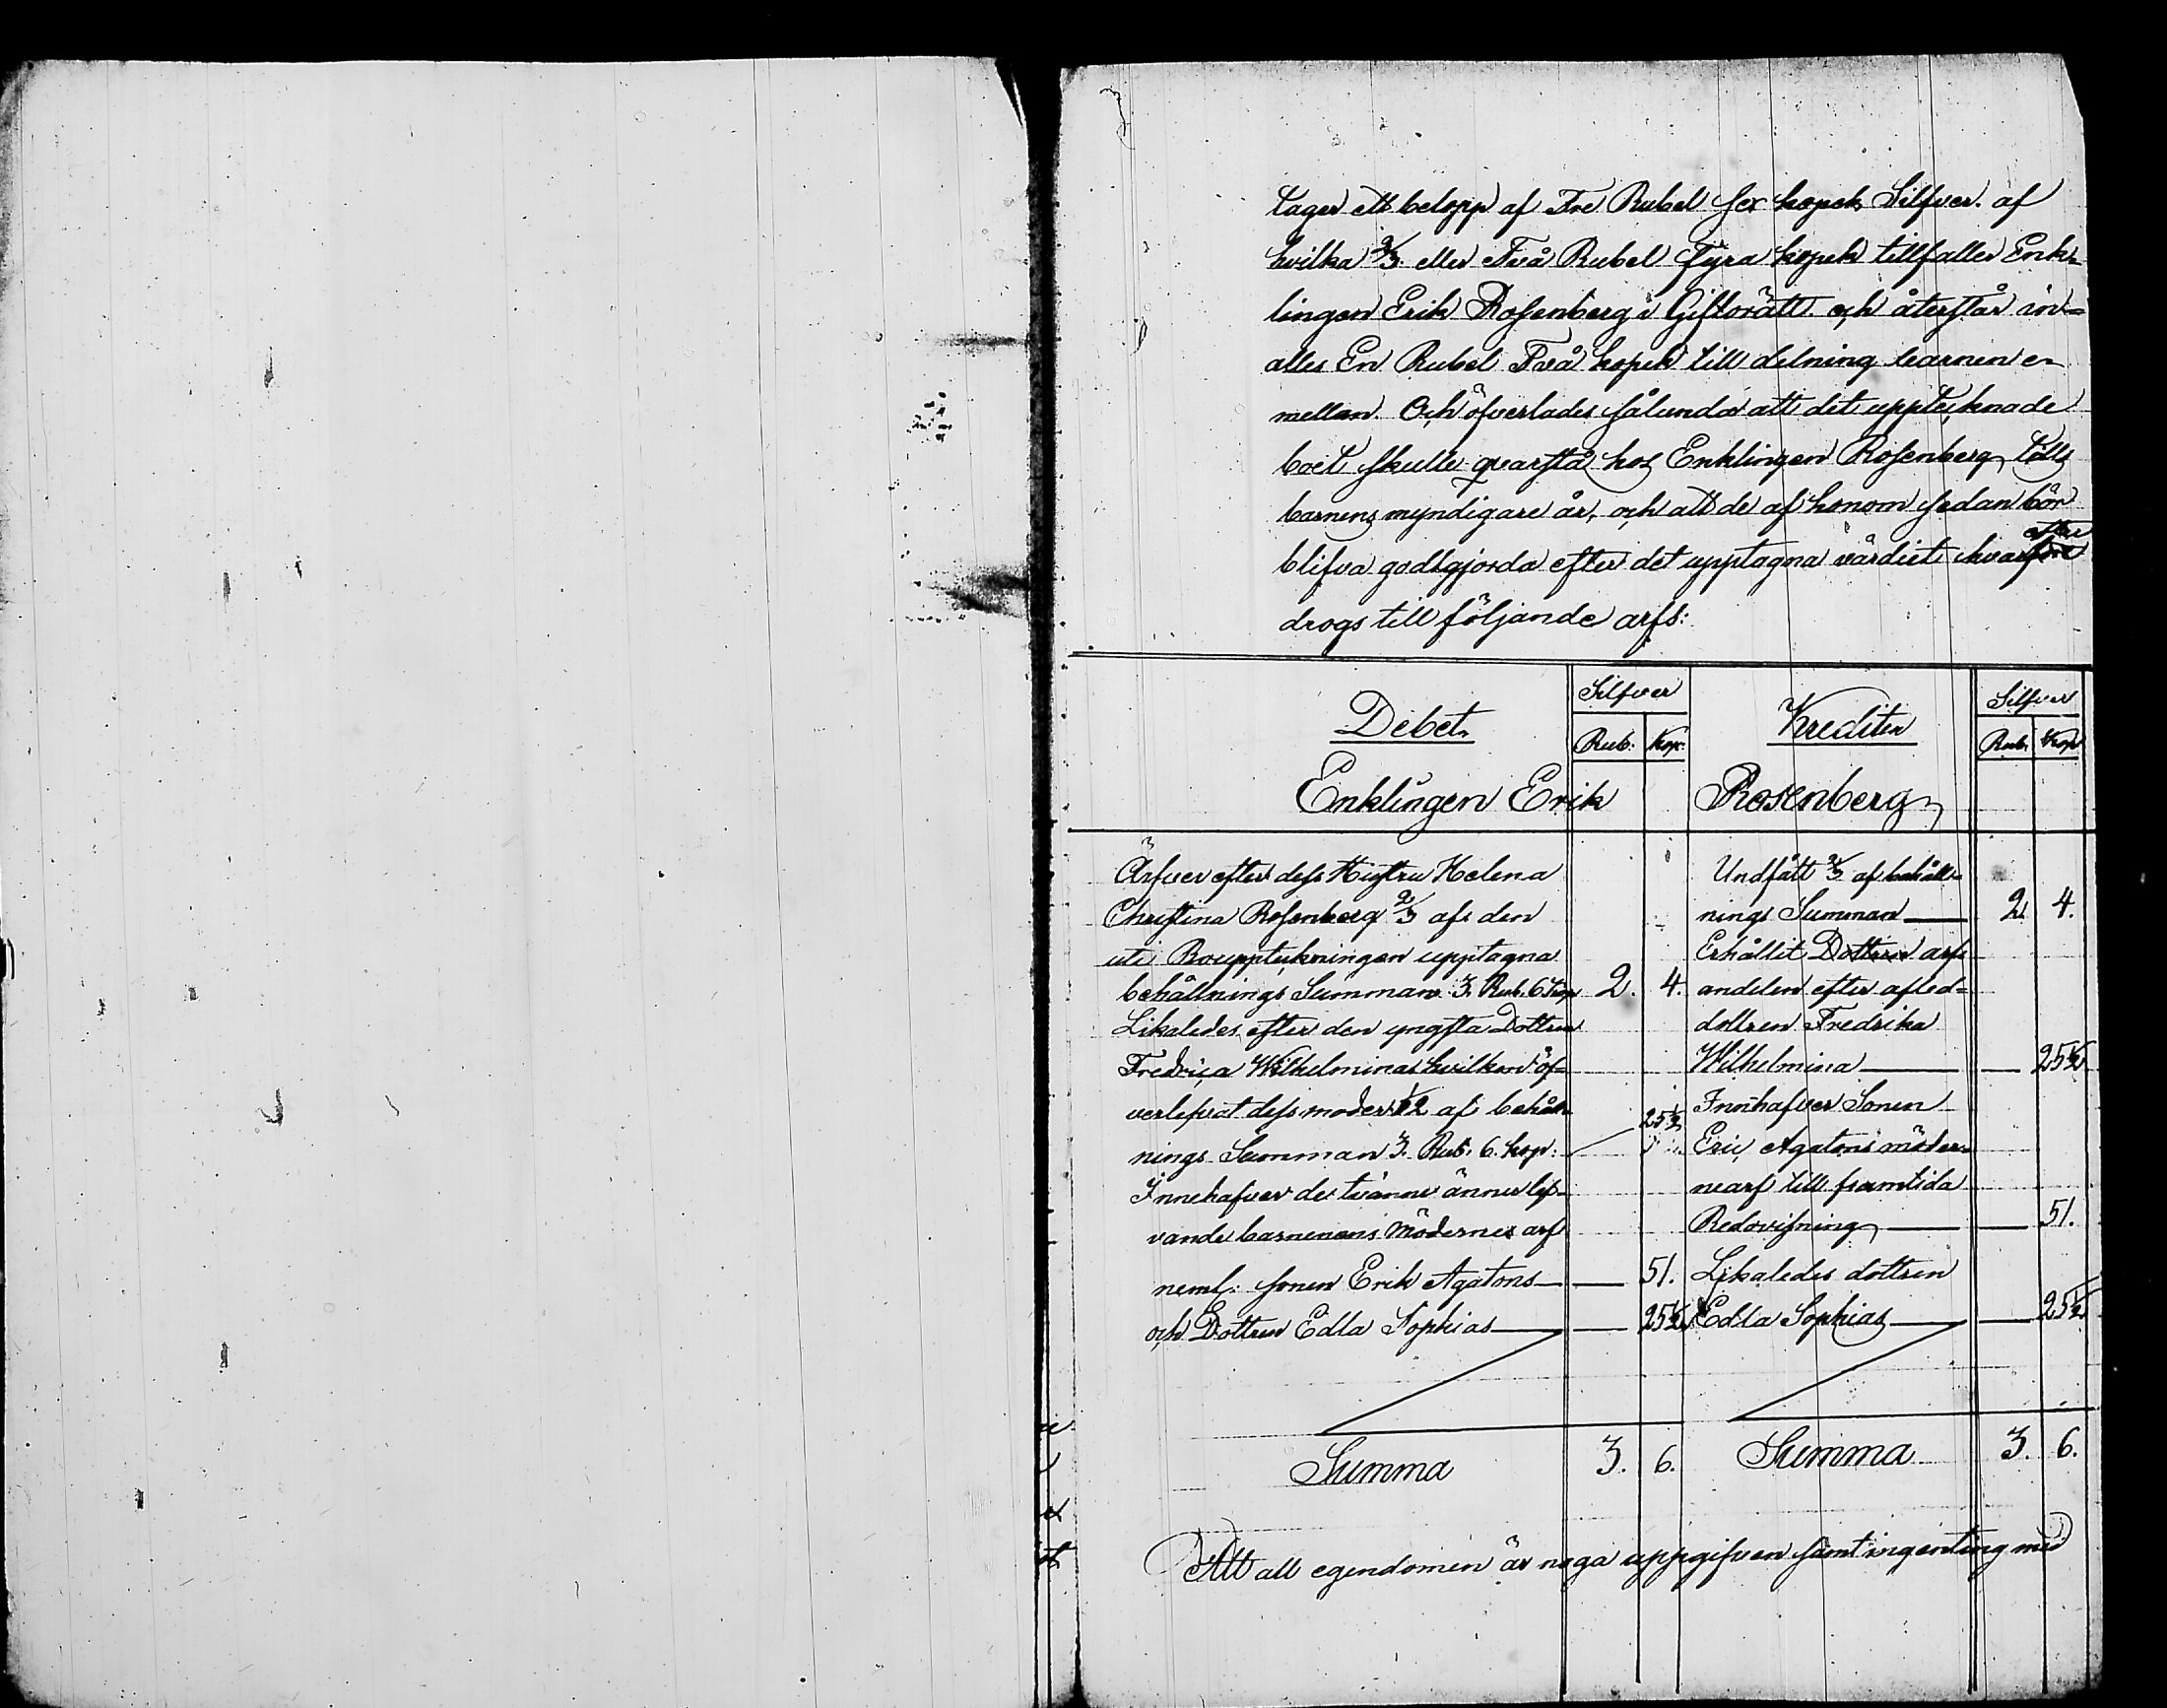 tager ett belopp af Tre Rubel sex kopek Silfver. af
hvilka 2/3. eller Två Rubel Fyra kopek tillfaller Enk-
lingen Erik Rosenberg i Giftorätt och återstår in-
alles En Rubel Två kopek till delning barnen e-
mellan. Och öfverlades sålunda att det upptecknade
boet skulle qvarstå hos Enklingen Rosenberg tills
barnens myndigare år, och att de af honom sedan bör
blifva godtgjorda efter det upptagna värdiet hvarefter
drogs till följande arfs:
Debet. Silfver Krediter Silfver
Rub. Kop. Rub. Kop
Enklingen Erik Rosenberg
Ärfver efter dess Hustru Helena
Christina Rosenberg 2/3 afs den
uti Bouppteckningen upptagna
behållnings Summan 3. Rub. 6 kop 2. 4.
Likaledes efter den yngsta Dottren
Fredrica Wilhelminas hvilken öf-
verlefvat dess moder 1/12 af behåll-
nings Summan 3. Rub. 6. kop. 25½
Innehafver de tvänne ännu lef-
vande barnenens Mödernes arf
neml: sonen Erik Agatons — — 51.
och Dottren Edla Sophias — — 25½
Undfått 2/3 af behåll-
nings Summan — 2 4.
Erhållit Dottren arfs
andelen efter afled-
dottren Fredrika
Wilhelmina — — 25½
Innhafver Sonen
Eric Agatons möder-
nearf till framtida
Redovisning — — 51.
Likaledes dottren
Edla Sophias — — 25½
Summa 3. 6. Summa 3. 6.
Att all egendomen är noga uppgifven samt ingenting med